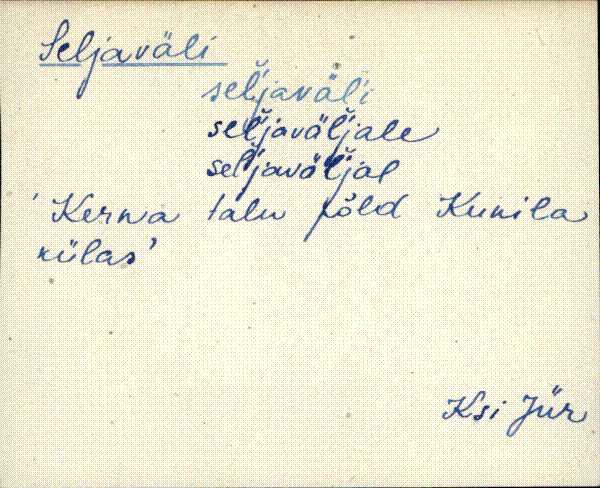 Seljaväli
seľjaväľi
seľjaväľjale
seľjaväľjal
'Kerwa talu põld Kunila
külas'
Ksi Jür